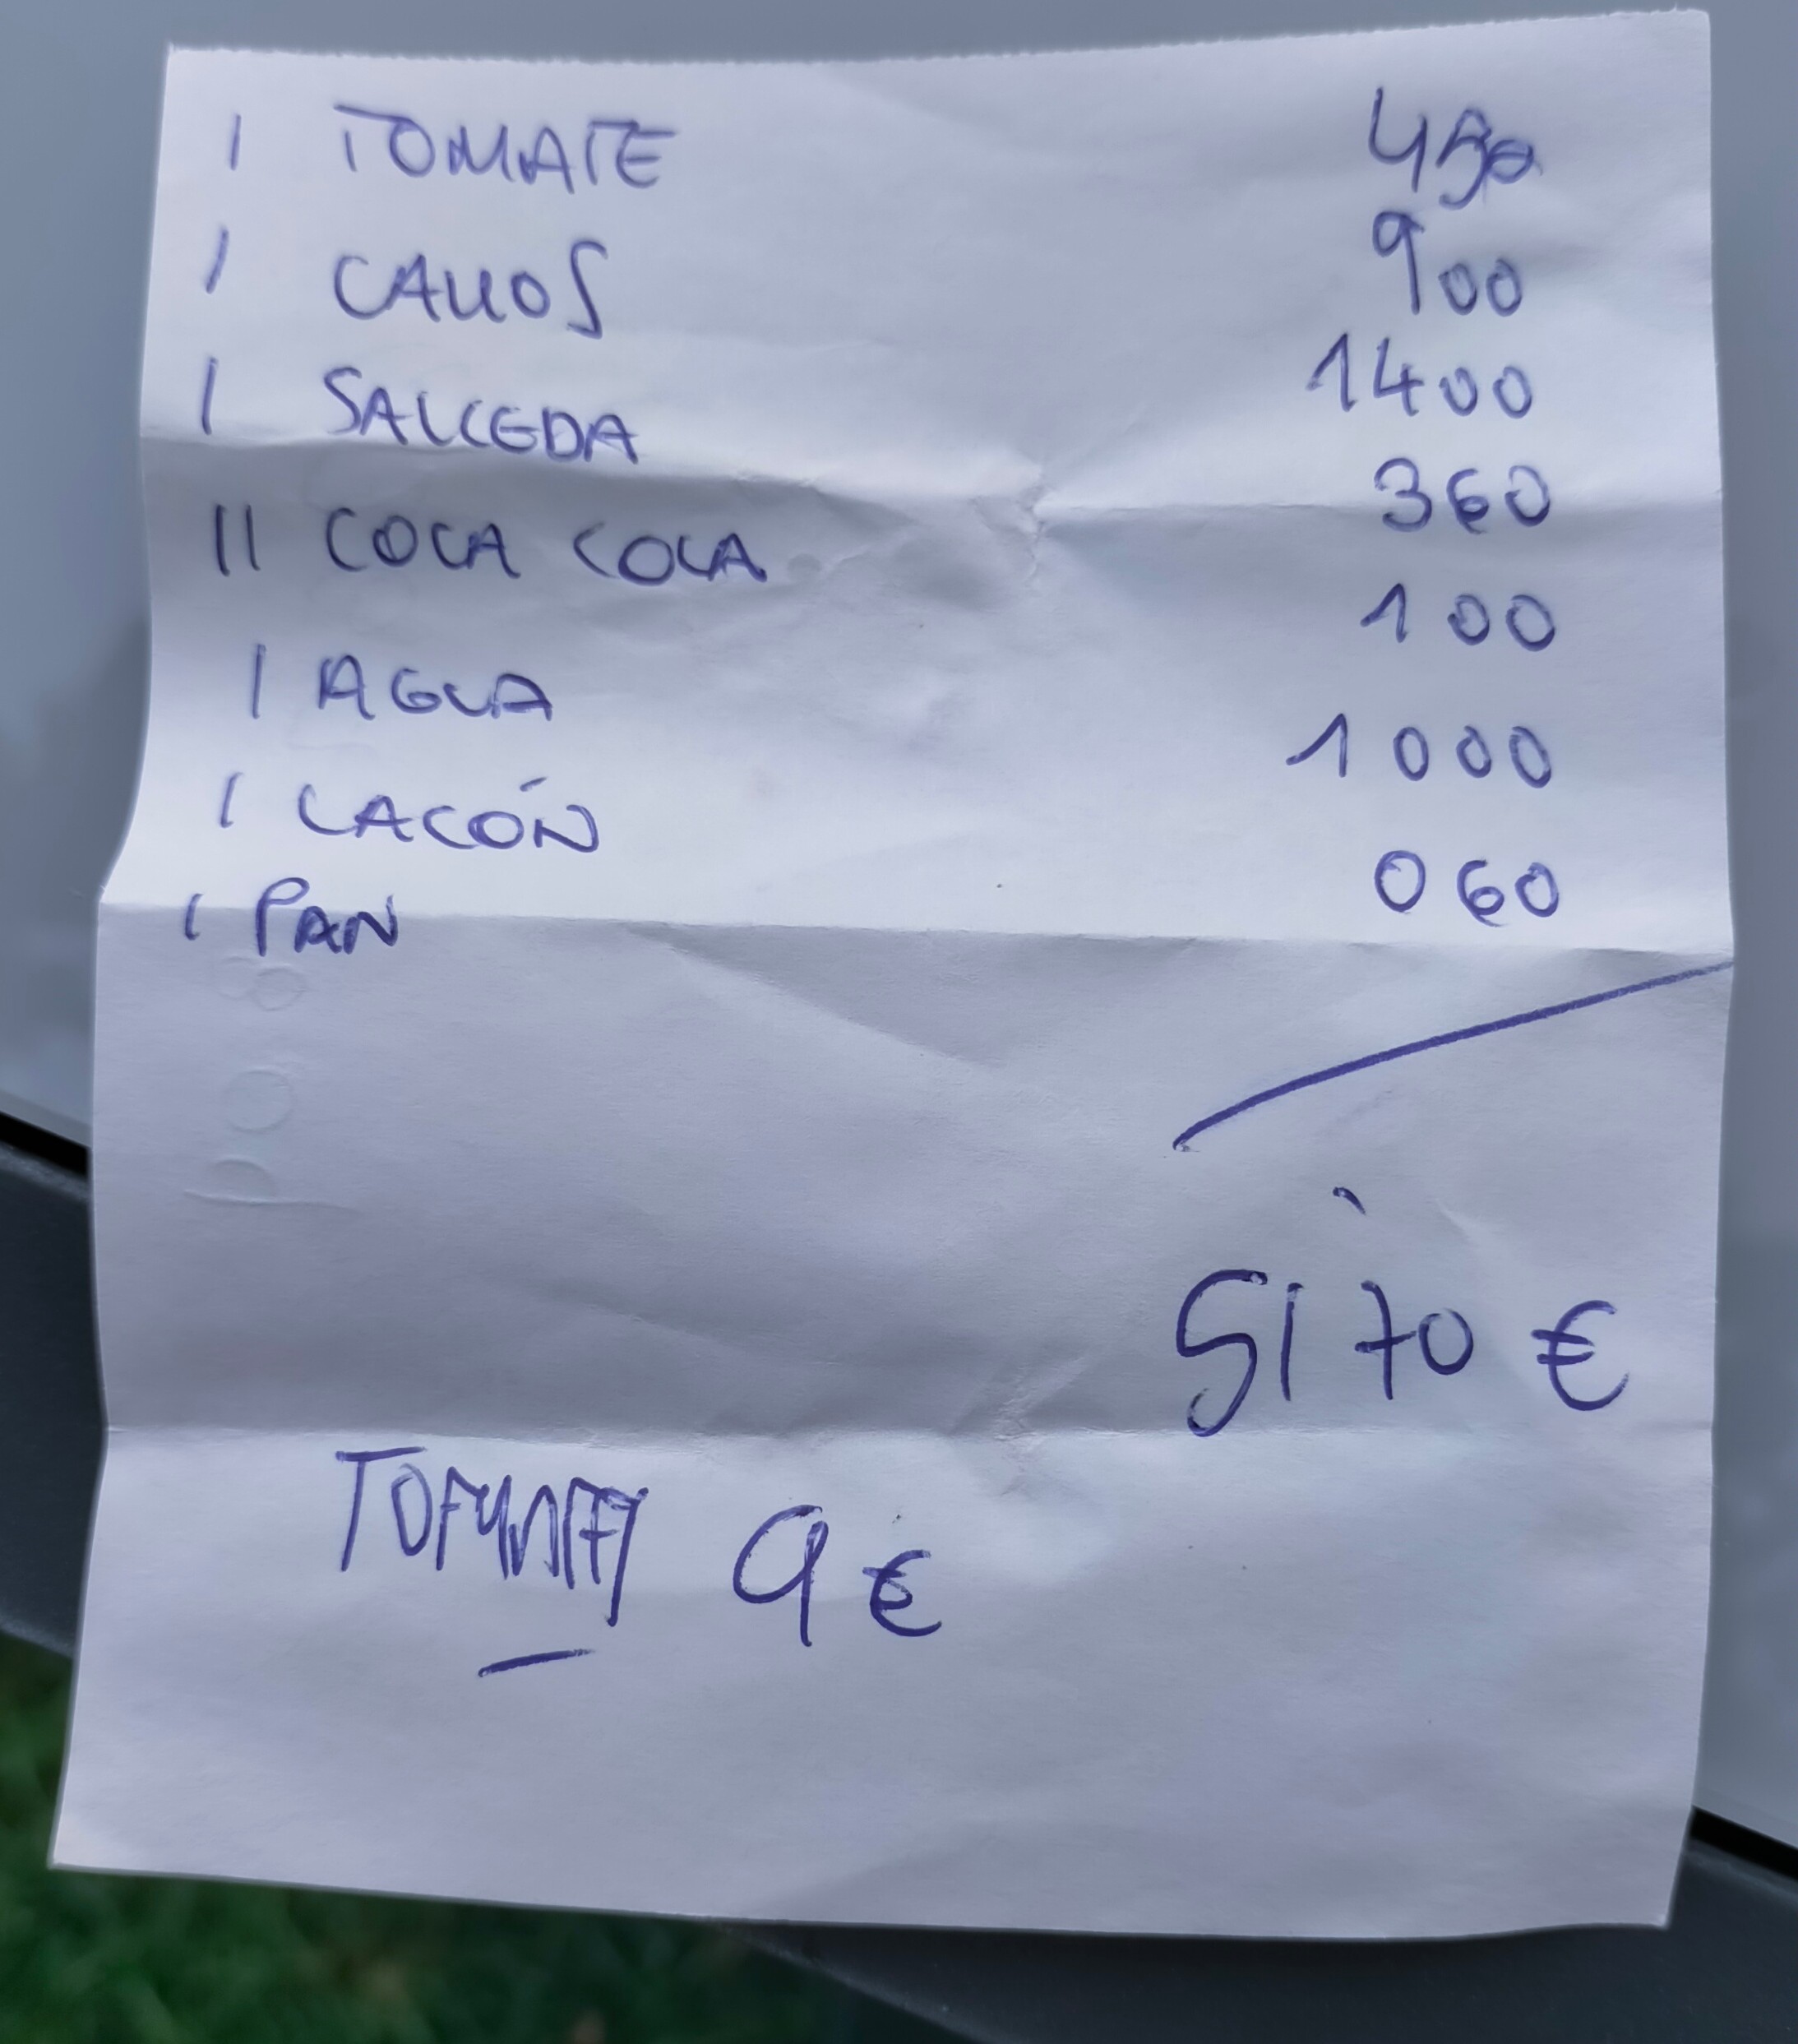 1 TOMATE 450
1 CALLOS 900
1 SALCEDA 1400
11 COCA COLA 360
1 AGUA 100
1 LACÓN 1000
1 PAN 060
51'70 €
9 €